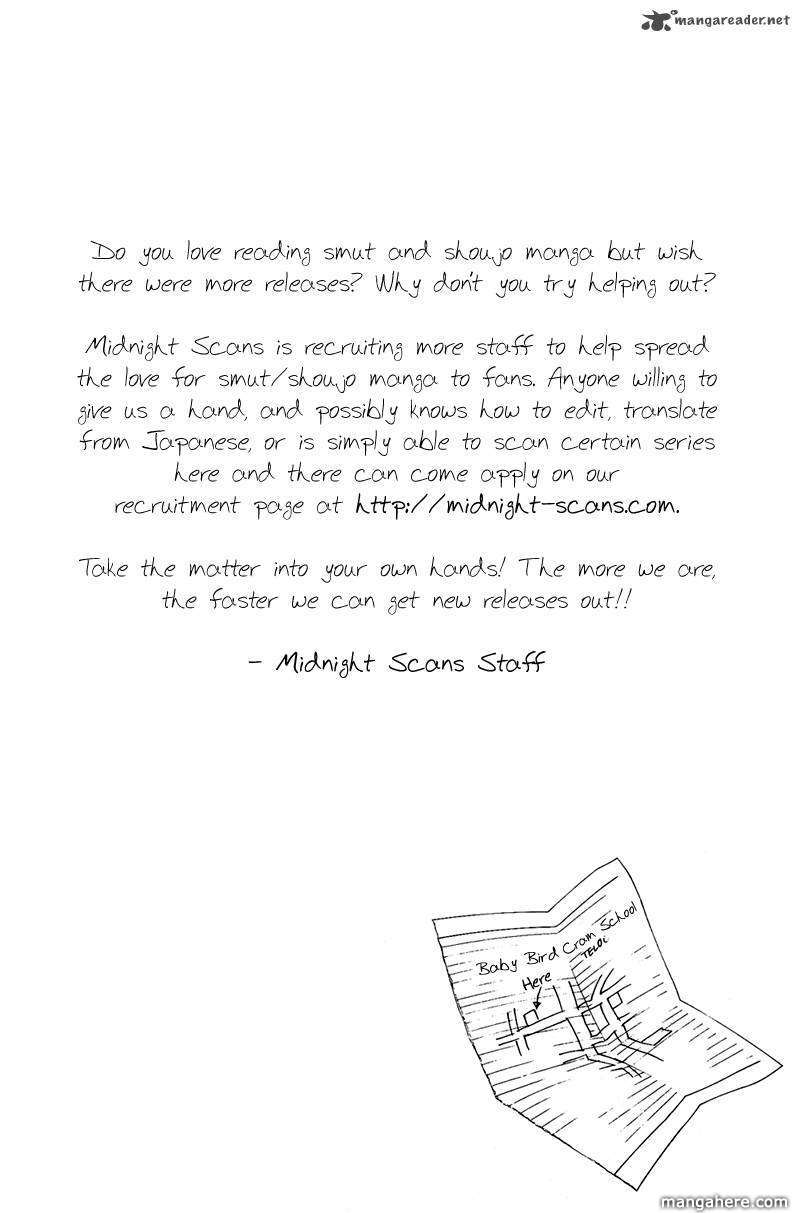 mangareader.net
Do you love reading smut and shoujo manga but wish
there were more releases? Why don't you try helping out?
Midnight Scans is recruiting more staff to help spread
the love for smut/shoujo manga to fans. Anyone willing to
give us a hand, and possibly knows how to edit, translate
from Japanese, or is simply able to scan certain series
here and there can come apply on our
recruitment page at http://midnight-scans.com.
Take the matter into your own hands! The more we are,
the faster we can get new releases out!!
- Midnight Scans Staff
Baby Bird Cram School
Here
mangahere.com